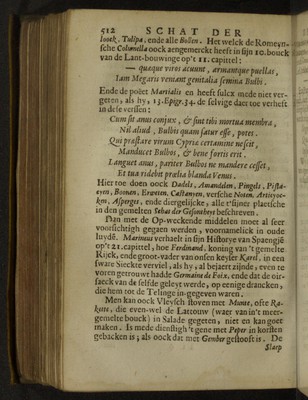 512 SCHAT DER
loock. Tulipa. ende alle Bollen. Het welck de Romeyn-
sche Columella oock aengemerckt heeft in sijn 10. bouck
van de Lant-bouwinge op't 11. capittel:
— quæque viros acuunt, armantque puellas,
Iam Megaris veniant genitalia semina Bulbi.
Ende de poët Martialis en heeft sulcx mede niet ver-
geten, als hy, 13. Epigr. 34. de selvige daer toe verheft
in dese versen:
Cum sit anus conjux, & sint tibi mortua membra,
Nil aliud, Bulbis quam satur esse, potes.
Qui præstare virum Cypriæ certamine nescit,
Manducet Bulbos, & bene fortis erit.
Languet anus, pariter Bulbos ne mandere cesset,
Et tua ridebit prælia blanda Venus.
Hier toe doen oock Dadels, Amandelen, Pingels, Pista-
eyen, Boonen, Erweten, Castanyen, versche Noten, Artisjoc-
ken, Asperges, ende diergelijcke, alle t'sijner plaetsche
in den gemelten Schat der Gesontheyt beschreven.
Dan met de Op-weckende middelen moet al seer
voorsichtigh gegaen werden, voornamelick in oude
luydē. Marineus verhaelt in sijn Historye van Spaengiē
op't 21. capittel, hoe Ferdinand, koning van 't gemelte
Rijck, ende groot-vader van onsen keyser Karel, in een
sware Sieckte verviel, als hy, al bejaert zijnde, even te
voren getrouwt hadde Germaine de Foix, ende dat de oir-
saeck van de selfde geleyt werde, op eenige drancken,
die hem tot de Telinge in-gegeven waren.
Men kan oock Vleysch stoven met Munte, ofte Ra-
kette, die even-wel de Lattouw (waer van in't meer-
gemelte bouck) in Salade gegeten, niet en kan goet
maken. Is mede dienstigh 't gene met Peper in korsten
gebacken is; als oock dat met Gember gestooft is. De
Slaep